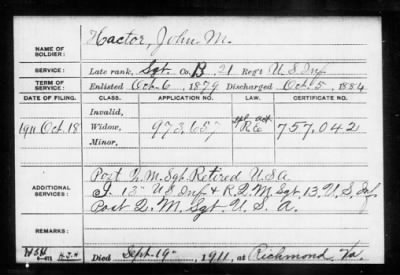 NAME OF SOLDIER: Hactor, John M.
SERVICE: Late rank, Sgt. Co. B, 21 Reg't U.S. Inf.
TERM OF SERVICE: Enlisted Oct. 6, 1879 Discharged Oct. 5, 1884
DATE OF FILING. CLASS. APPLICATION NO. LAW. CERTIFICATE NO.
Invalid,
1911 Oct. 18 Widow, 973.657 757.042
Minor,
Post Q.M. Sgt. Retired U.S.A
ADDITIONAL SERVICES: 13" U.S. Inf. & R.Q.M. Sgt. 13, U.S. Inf.
Post Q.M. Sgt. U.S.A.
REMARKS:
Died Sept. 19", 1911, at Richmond, Va.